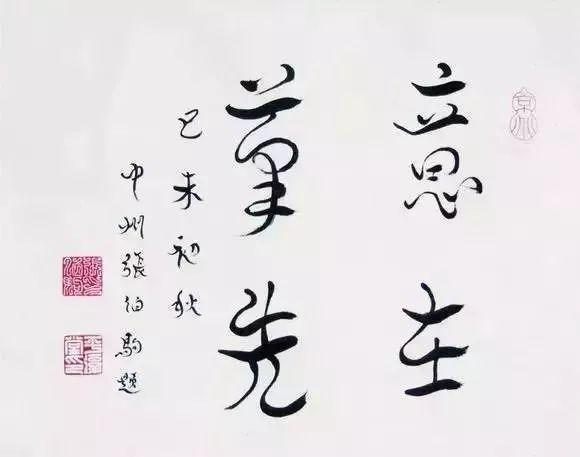 意在
筆先
己未初秋
中州張伯駒題